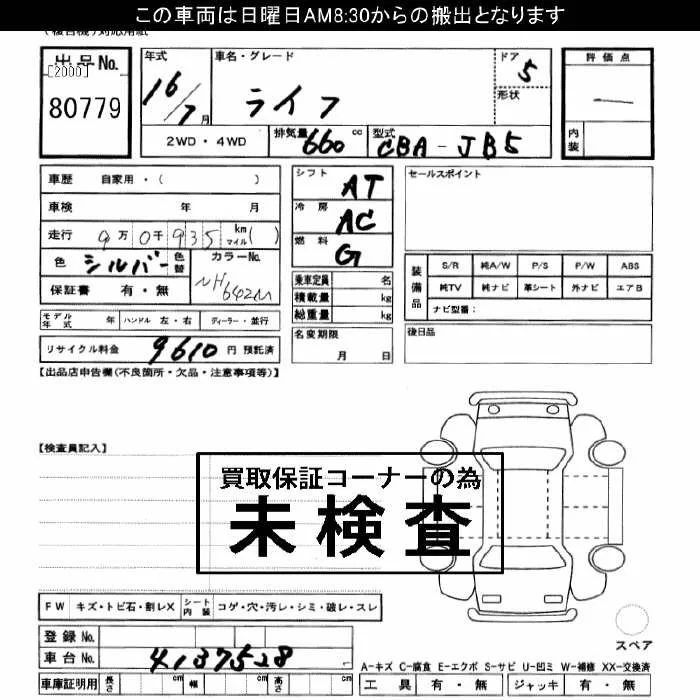 この車両は日曜日AM8:30からの搬出となります
(複合機)対応用紙
出品No. [2000] 80779
年式 16/7月
車名・グレード ライフ
ドア 5
形状
2WD・4WD
排気量 660 cc
型式 CBA-JB5
評価点 —
内装
車歴 自家用・( )
車検 年 月
走行 9万0千935 km マイル( )
色 シルバー 色替
カラーNo. NH642M
保証書 有・無
モデル年式 年 ハンドル 左・右 ディーラー・並行
リサイクル料金 9610 円 預託済
シフト AT
冷房 AC
燃料 G
乗車定員 名
積載量 kg
総重量 kg
名変期限 月 日
セールスポイント
装備品 S/R 純A/W P/S P/W ABS
純TV 純ナビ 革シート 外ナビ エアB
ナビ型番:
後日品
【出品店申告欄(不良箇所・欠品・注意事項等)】
【検査員記入】
買取保証コーナーの為
未検査
FW キズ・トビ石・割レX シート内装 コゲ・穴・汚レ・シミ・破レ・スレ
登録No.
車台No. 4137528
車庫証明用 長さ cm 幅 cm 高さ cm
スペア
A-キズ C-腐食 E-エクボ S-サビ U-凹ミ W-補修 XX-交換済
工具 有・無 ジャッキ 有・無